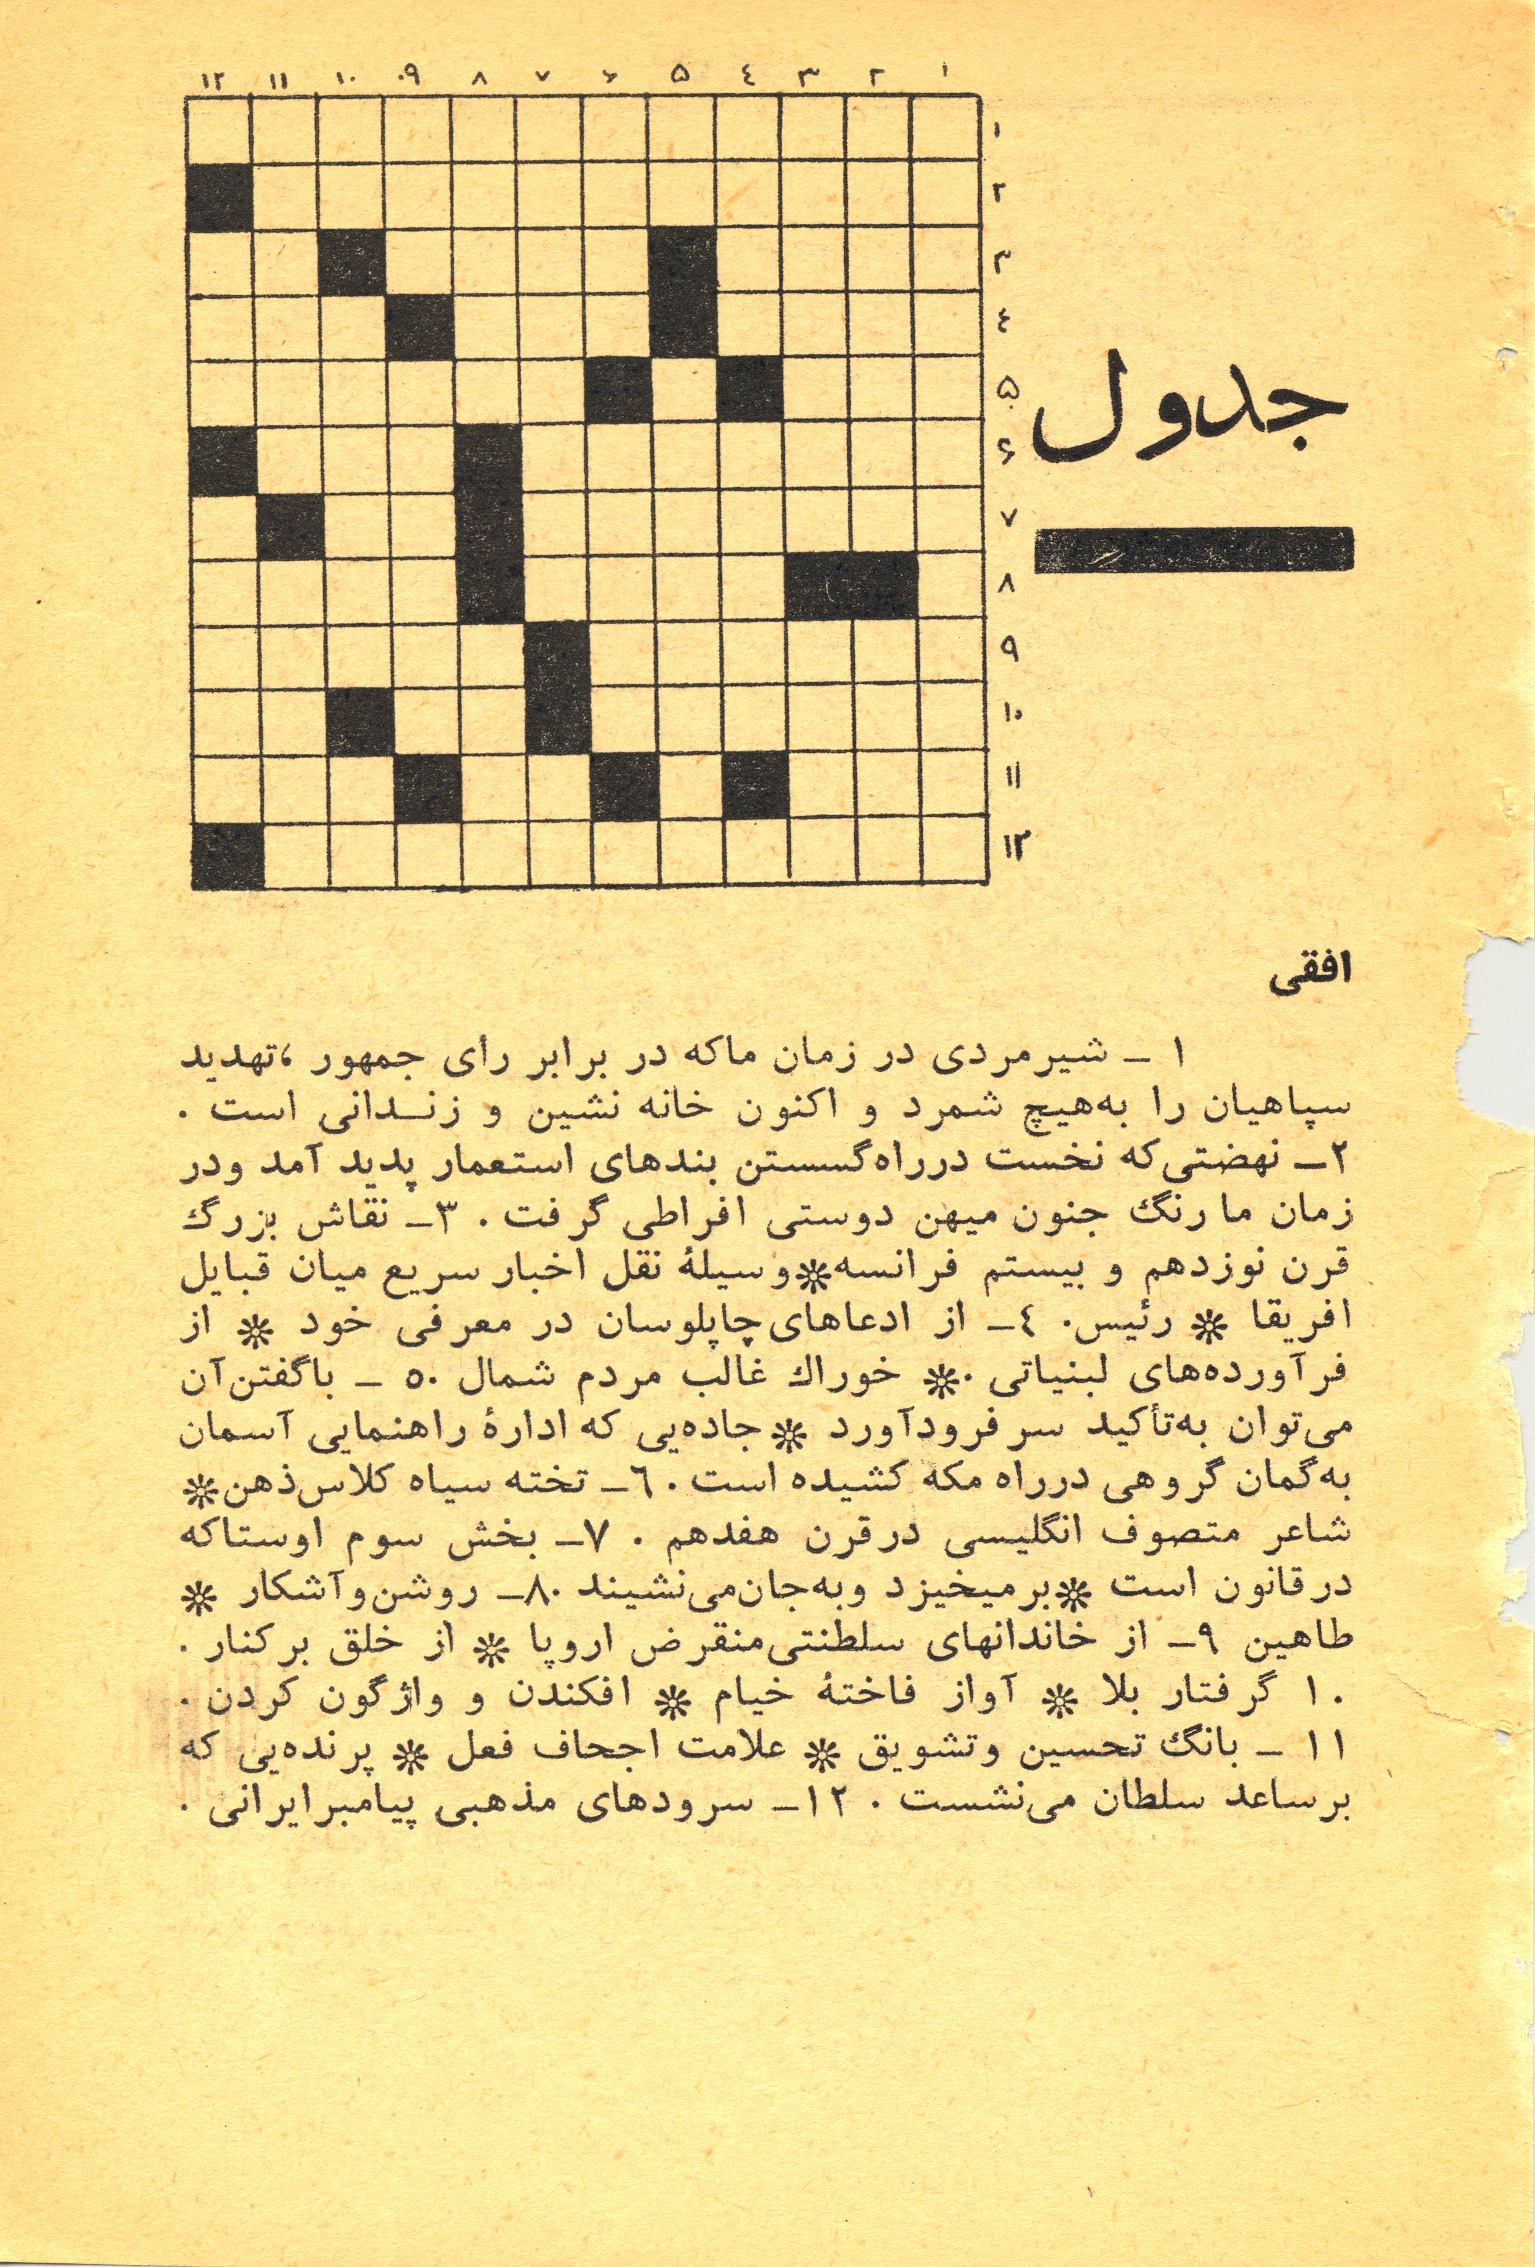 ۱۲ ۱۱ ۱۰ ۹ ۸ ۷ ۶ ۵ ٤ ۳ ۲ ۱
۱
۲
۳
٤
۵
۶
۷
۸
۹
۱۰
۱۱
۱۲
جدول
افقی
۱ ــ شیرمردی در زمان ماکه در برابر رأی جمهور ،تهدید
سپاهیان را به‌هیچ شمرد و اکنون خانه نشین و زنـدانی است .
۲ــ نهضتی‌که نخست درراه‌گسستن بندهای استعمار پدید آمد ودر
زمان ما رنگ جنون میهن دوستی افراطی گرفت . ۳ــ نقاش بزرگ
قرن نوزدهم و بیستم فرانسه❊وسیلهٔ نقل اخبار سریع میان قبایل
افریقا ❊ رئیس. ٤ــ از ادعاهای‌چاپلوسان در معرفی خود ❊ از
فرآورده‌های لبنیاتی .❊ خوراك غالب مردم شمال .٥ ــ باگفتن‌آن
می‌توان به‌تأکید سر فرودآورد ❊جاده‌یی که ادارهٔ راهنمایی آسمان
به‌گمان گروهی درراه مکه کشیده است . ٦ــ تخته سیاه کلاس‌ذهن❊
شاعر متصوف انگلیسی درقرن هفدهم . ۷ــ بخش سوم اوستاکه
درقانون است ❊برمیخیزد وبه‌جان‌می‌نشیند .۸ــ روشن‌وآشکار ❊
طاهین ۹ــ از خاندانهای سلطنتی‌منقرض اروپا ❊ از خلق برکنار .
۱۰ گرفتار بلا ❊ آواز فاختهٔ خیام ❊ افکندن و واژگون کردن .
۱۱ ــ بانگ تحسین وتشویق ❊ علامت اجحاف فعل ❊ پرنده‌یی که
برساعد سلطان می‌نشست . ۱۲ــ سرودهای مذهبی پیامبرایرانی .